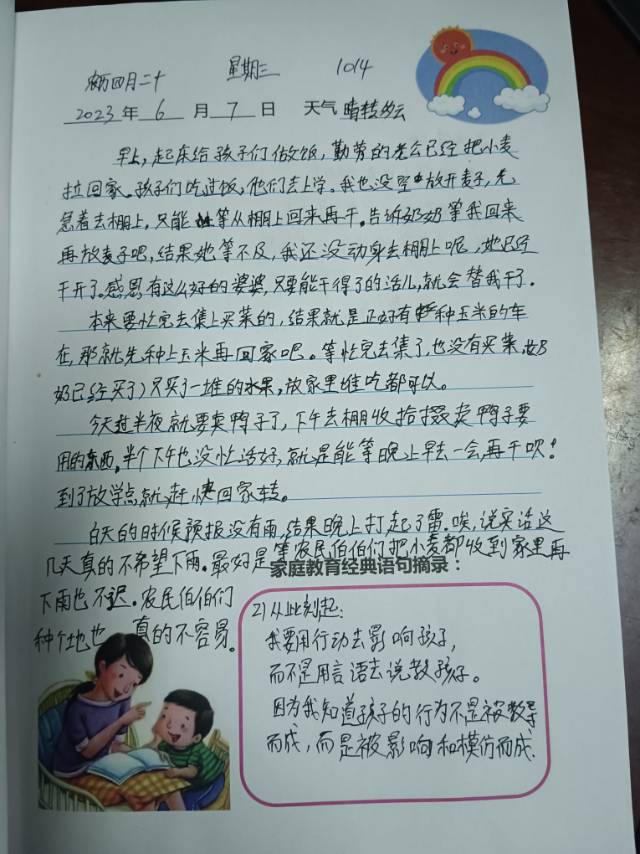 农历四月二十 星期三 1014
2023年 6 月 7 日 天气 晴转多云
早上,起床给孩子们做饭,勤劳的老公已经把小麦
拉回家。孩子们吃过饭,他们去上学。我也没空放开麦子,先
急着去棚上,只能等从棚上回来再干。告诉奶奶等我回来
再放麦子吧,结果她等不及,我还没动身去棚上呢,她已经
干开了。感恩有这么好的婆婆,只要能干得了的活儿,就会替我干了。
本来要忙完去集上买菜的,结果就是正好有种玉米的车
在,那就先种上玉米再回家吧。等忙完去集了,也没有买菜,(奶
奶已经买了)只买了一堆的水果,放家里谁吃都可以。
今天过半夜就要卖鸭子了,下午去棚收拾掇卖鸭子要
用的东西,半个下午也没忙活好,就是能等晚上早去一会,再干吹!
到了放学点就赶快回家转。
白天的时候预报没有雨,结果晚上打起了雷。唉,说实话这
几天真的不希望下雨。最好是等农民伯伯们把小麦都收到家里再
下雨也不迟。农民伯伯们
种个地也真的不容易。
家庭教育经典语句摘录:
21从此刻起:
我要用行动去影响孩子,
而不是用言语去说教孩子。
因为我知道孩子的行为不是被教导
而成,而是被影响和模仿而成.